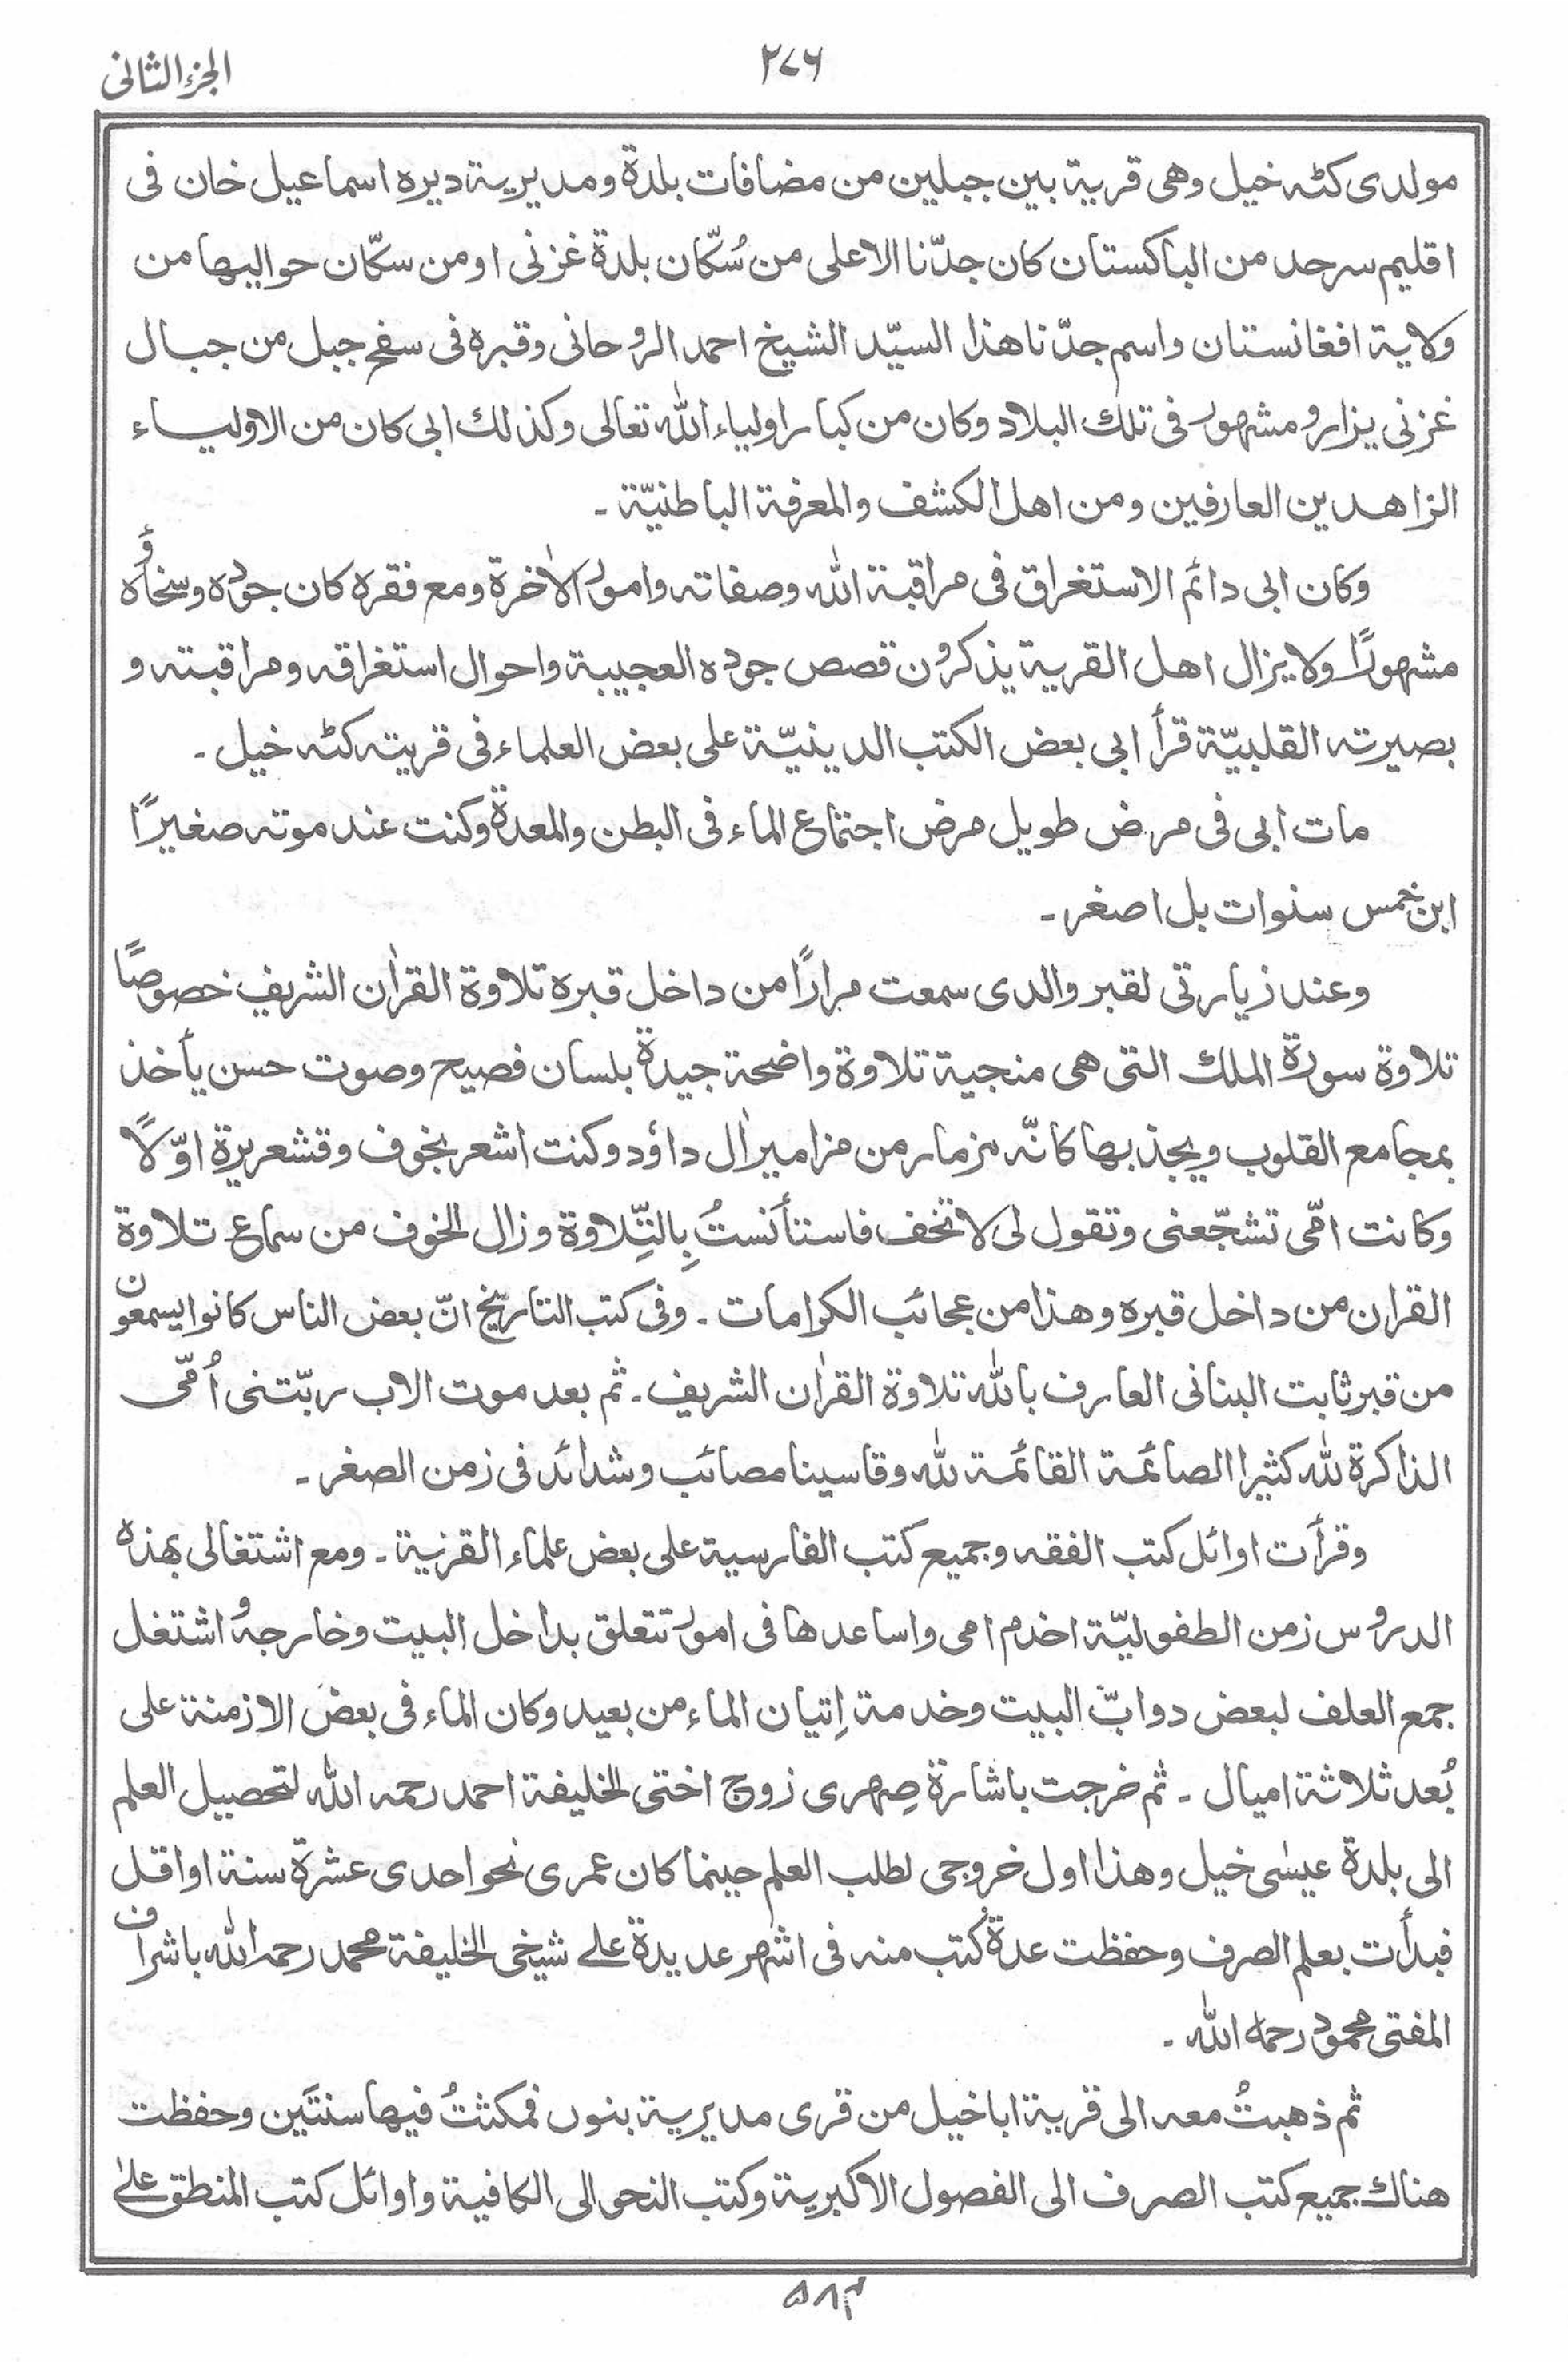 الجزء الثانی
۲۷۶
مولدی کٹہ خیل وھی قریة بین جبلین من مضافات بلدة ومدیریة دیرہ اسماعیل خان فی
اقلیم سرحد من الباکستان کان جدّنا الاعلی من سُکّان بلدة غزنی او من سکّان حوالیھا من
ولایة افغانستان واسم جدّنا ھذا السیّد الشیخ احمد الروحانی وقبرہ فی سفح جبل من جبال
غزنی یزار و مشھور فی تلك البلاد وکان من کبار اولیاء اللّٰہ تعالی وکذلك ابی کان من الاولیاء
الزاھدین العارفین ومن اھل الکشف والمعرفة الباطنیّة ۔
وکان ابی دائم الاستغراق فی مراقبة اللّٰہ وصفاته وامور الاٰخرة ومع فقرہ کان جودہ وسخاؤُہ
مشھورًا ولا یزال اھل القریة یذکرون قصص جودہ العجیبة واحوال استغراقه ومراقبته و
بصیرته القلبیّة قرأ ابی بعض الکتب الدینیّة علی بعض العلماء فی قریته کٹہ خیل ۔
مات ابی فی مرض طویل مرض اجتماع الماء فی البطن والمعدة وکنت عند موته صغیرًا
ابن خمس سنوات بل اصغر ۔
وعند زیارتی لقبر والدی سمعت مرارًا من داخل قبرہ تلاوة القراٰن الشریف خصوصًا
تلاوة سورة الملك التی ھی منجیة تلاوة واضحة جیدة بلسان فصیح وصوت حسن یأخذ
بمجامع القلوب ویجذبھا کانّه مزمار من مزامیر اٰل داؤد وکنت اشعر بخوف وقشعریرة اوّلًا
وکانت امّی تشجّعنی وتقول لی لا تخف فاستأنستُ بِالتِّلاوة وزال الخوف من سماع تلاوة
القران من داخل قبرہ وھذا من عجائب الکرامات ۔ وفی کتب التاریخ انّ بعض الناس کانوا یسمعون
من قبر ثابت البنانی العارف باللّٰہ تلاوة القراٰن الشریف ۔ ثم بعد موت الاب ربّتنی اُمّی
الذاکرة للّٰہ کثیرا الصائمة القائمة للّٰہ وقاسینا مصائب وشدائد فی زمن الصغر ۔
وقرأت اوائل کتب الفقه وجمیع کتب الفارسیة علی بعض علماء القریة ۔ ومع اشتغالی بھذہ
الدروس زمن الطفولیّة اخدم امی واساعدھا فی امور تتعلق بداخل البیت وخارجه و اشتغل
جمع العلف لبعض دوابّ البیت وخدمة اِتیان الماء من بعید وکان الماء فی بعض الازمنة علی
بُعد ثلاثة امیال ۔ ثم خرجت باشارة صِھری زوج اختی الخلیفة احمد رحمه اللّٰہ لتحصیل العلم
الی بلدة عیسٰی خیل وھذا اول خروجی لطلب العلم حینما کان عمری نحو احدی عشرة سنة او اقل
فبدأت بعلم الصرف وحفظت عدة کتب منه فی اشھر عدیدة علے شیخی الخلیفة محمد رحمه اللّٰہ باشراف
المفتی محمود رحمه اللّٰہ ۔
ثم ذھبتُ معه الی قریة اباخیل من قری مدیریة بنوں فمکثتُ فیھا سنتَین وحفظت
ھناك جمیع کتب الصرف الی الفصول الاکبریة وکتب النحو الی الکافیة واوائل کتب المنطق علیٰ
۵۸۳